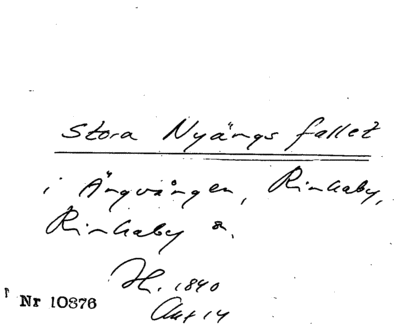 Stora Nyängsfallet
i Ängvången, Rinkaby,
Rinkaby s.
H. 1840
Akt 14
Nr 10876